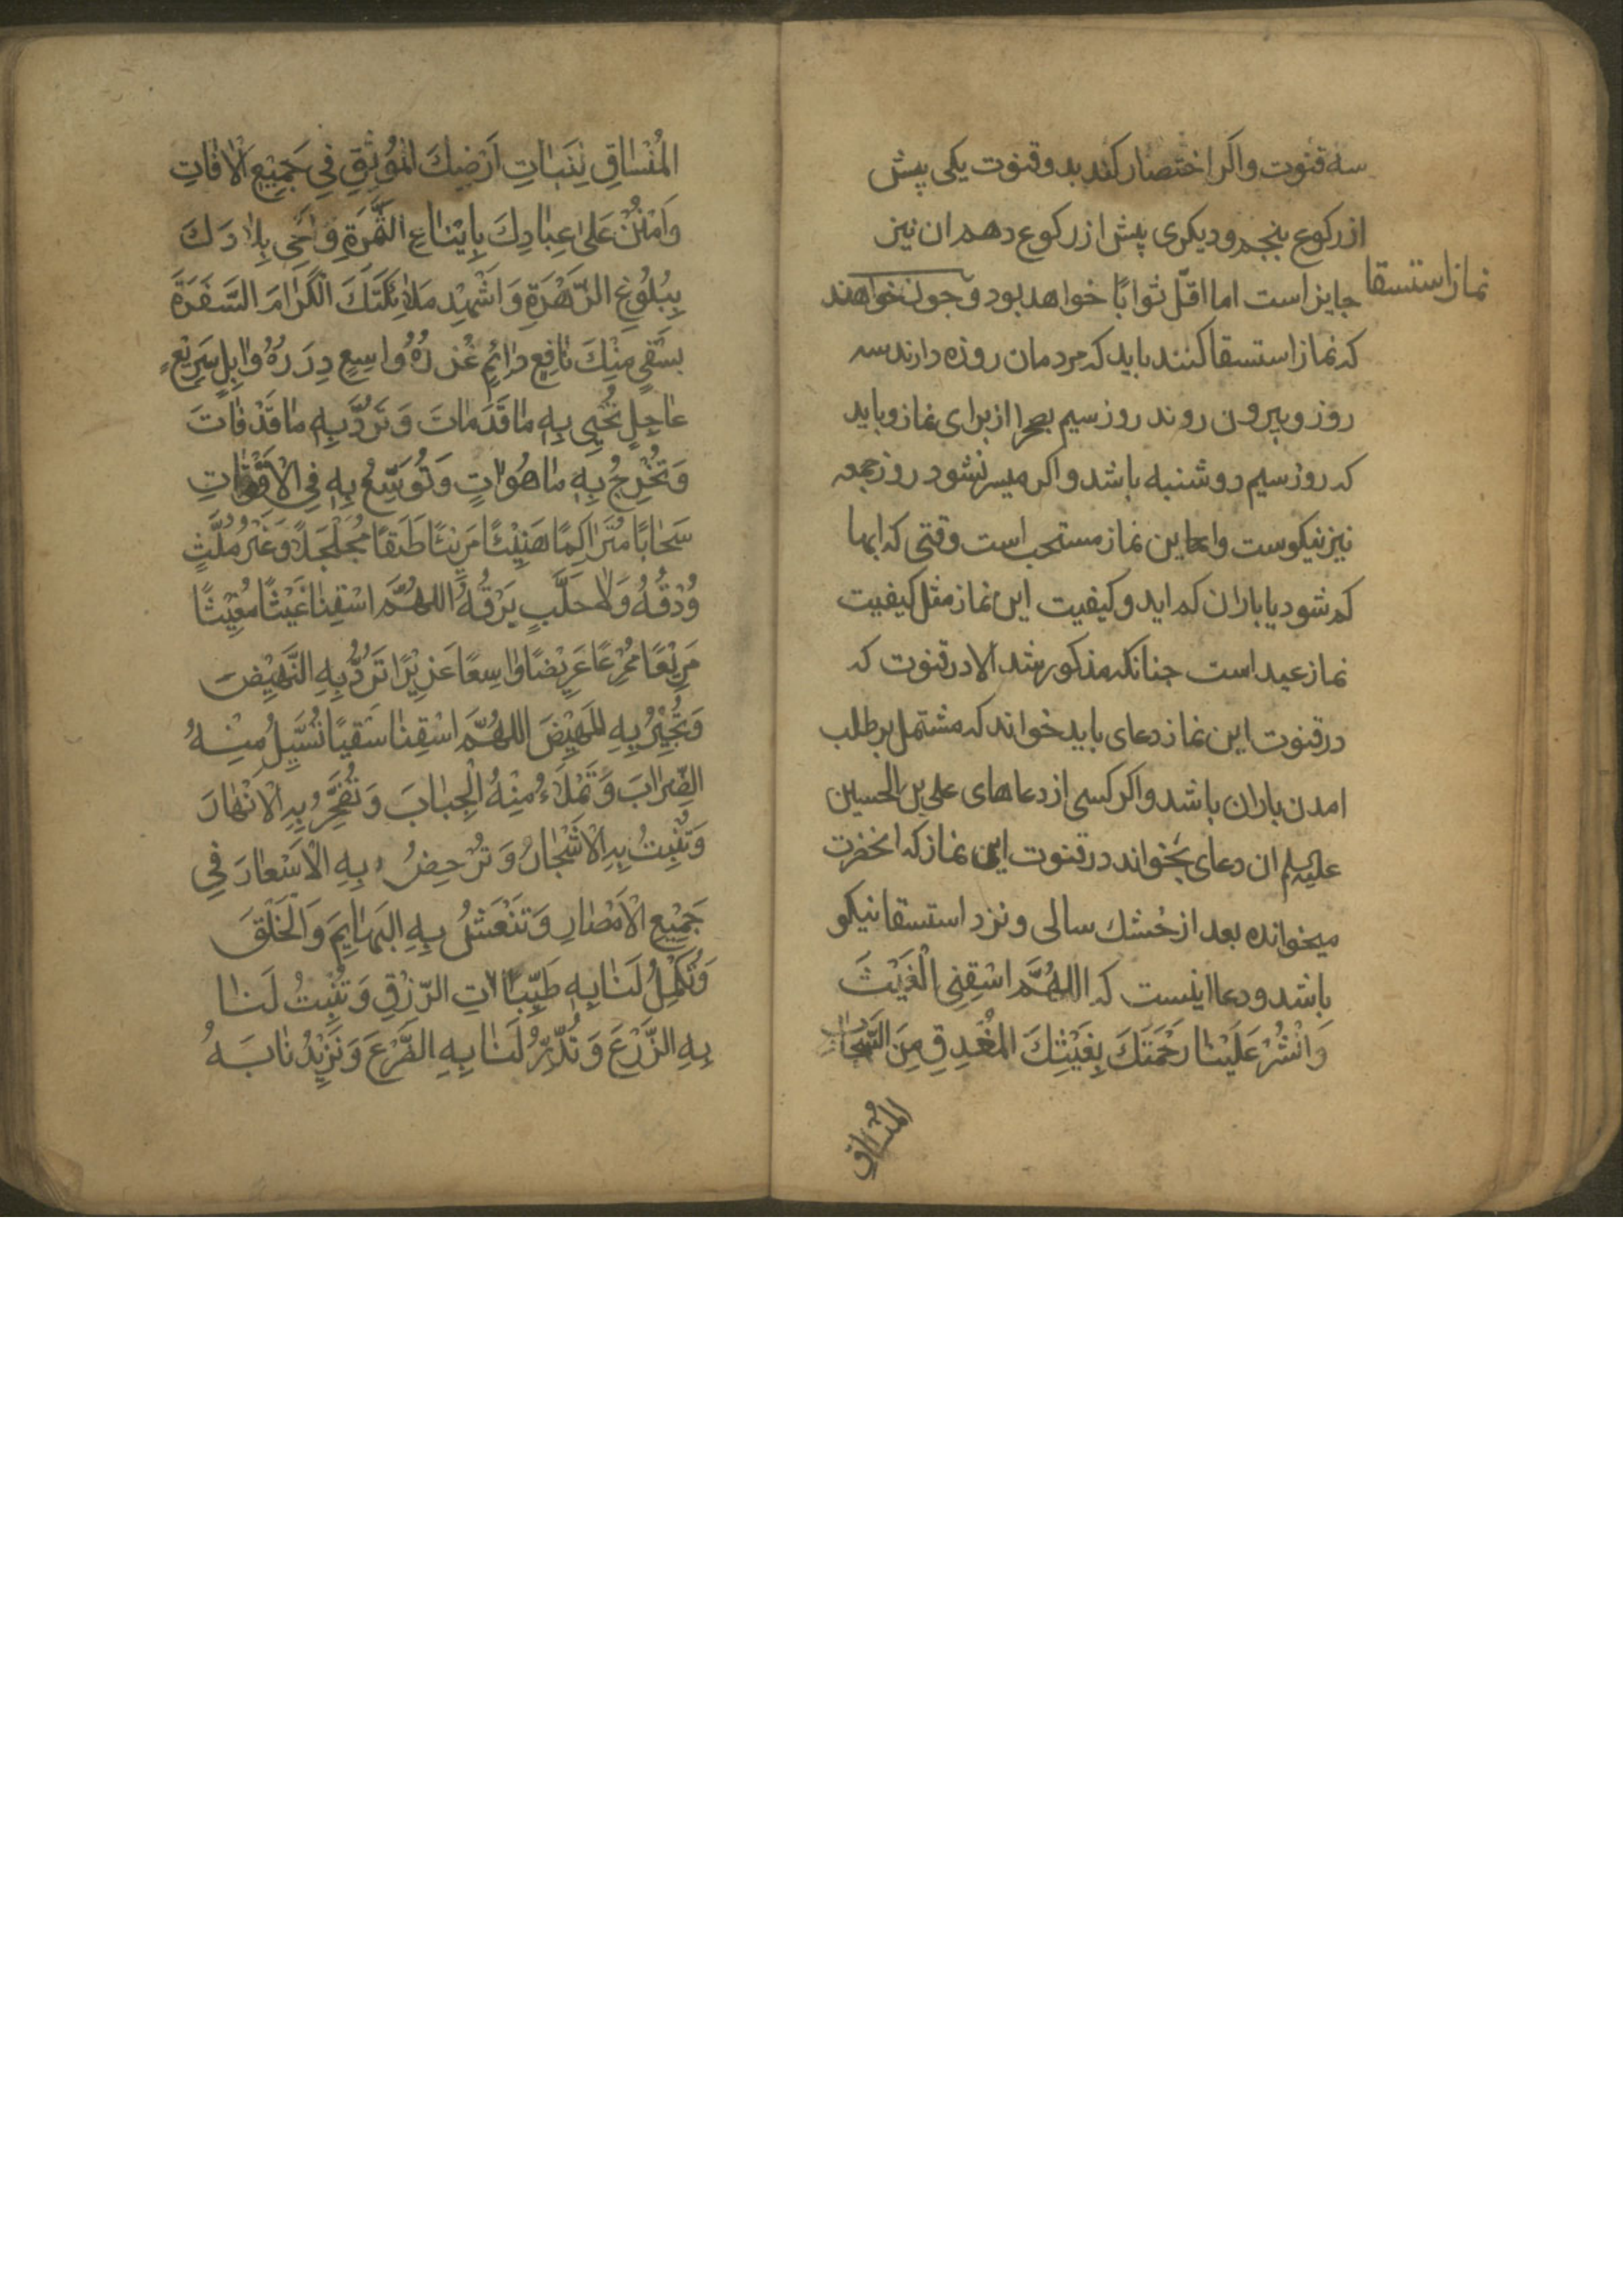 سه قنوت واکر اختصار کند بدو قنوت یکی پیش
از رکوع پنجم ودیکری پیش از رکوع دهم ان نیز
نماز استسقا
جایز است اما اقلّ ثوابًا خواهد بود وجون خواهند
که نماز استسقا کنند باید که مردمان روزه دارند سه
روز وبیرون روند روز سیم بصحرا از برای نماز وباید
که روز سیم دوشنبه باشد واکر میسر نشود روز جمعه
نیز نیکوست واین نماز مستحب است وقتی که ابها
کم شود یا باران کم اید وکیفیت این نماز مثل کیفیت
نماز عید است جنانکه مذکور شد الا در قنوت که
در قنوت این نماز دعای باید خواند که مشتمل بر طلب
امدن باران باشد واکر کسی از دعاهای علی بن الحسین
علیه السلم ان دعای بخواند در قنوت این نماز که انحضرت
میخوانده بعد از خشك سالی ونزد استسقا نیکو
باشد ودعا اینست که اللهُمَّ اسْقِنِی الْغَیْثَ
وَانْشُرْ عَلَیْنا رَحْمَتَكَ بِغَیْثِكَ المُغْدِقِ مِنَ السَّحَابِ
المُنْساقِ
المُنْسَاقِ لِنَبَاتِ اَرْضِكَ المُوْنِقِ فِي جَمِيْعِ الْافَاتِ
وَامْنُنْ عَلىٰ عِبَادِكَ بِاِيْنَاعِ الثَّمَرَةِ وَاَحْيِ بِلَادَكَ
بِبُلُوْغِ الزَّهْرَةِ وَاَشْهِدْ مَلَائِكَتَكَ الْكِرَامَ السَّفَرَةَ
بِسَقْيٍ مِنْكَ نَافِعٍ دَائِمٍ غُزْرُهُ وَاسِعٍ دِرَرُهُ وَابِلٍ سَرِيْعٍ
عَاجِلٍ تُحْيِي بِهِ مَا قَدْ مَاتَ وَتَرُدُّ بِهِ مَا قَدْ فَاتَ
وَتُخْرِجُ بِهِ مَا هُوَ اتٍ وَتُوَسِّعُ بِهِ فِي الْاَقْوَاتِ
سَحَابًا مُتَرَاكِمًا هَنِيْئًا مَرِيْئًا طَبَقًا مُجَلْجَلًا وَغَيْرَ مُلِثٍّ
وُدْقُهُ وَلَا خُلَّبٍ بَرْقُهُ اللهُمَّ اسْقِنَا غَيْثًا مُغِيْثًا
مَرِيْعًا مُمْرِعًا عَرِيْضًا وَاسِعًا غَزِيْرًا تَرُدُّ بِهِ النَّهِيْضَ
وَتُجْبِرُ بِهِ المَهِيْضَ اللهُمَّ اسْقِنَا سَقْيًا تُسَيِّلُ مِنْهُ
الضِّرَابَ وَتَمْلَأُ مِنْهُ الْجِبَابَ وَتُفَجِّرُ بِهِ الْاَنْهَارَ
وَتُنْبِتُ بِهِ الْاَشْجَارَ وَتُرْخِصُ بِهِ الْاَسْعَارَ فِي
جَمِيْعِ الْاَمْصَارِ وَتَنْعَشُ بِهِ البَهَايِمَ وَالْخَلْقَ
وَتُكْمِلُ لَنَا بِهِ طَيِّبَاتِ الرِّزْقِ وَتُنْبِتُ لَنَا
بِهِ الزَّرْعَ وَتُدِرُّ لَنَا بِهِ الضَّرْعَ وَتَزِيْدُنَا بَهُ